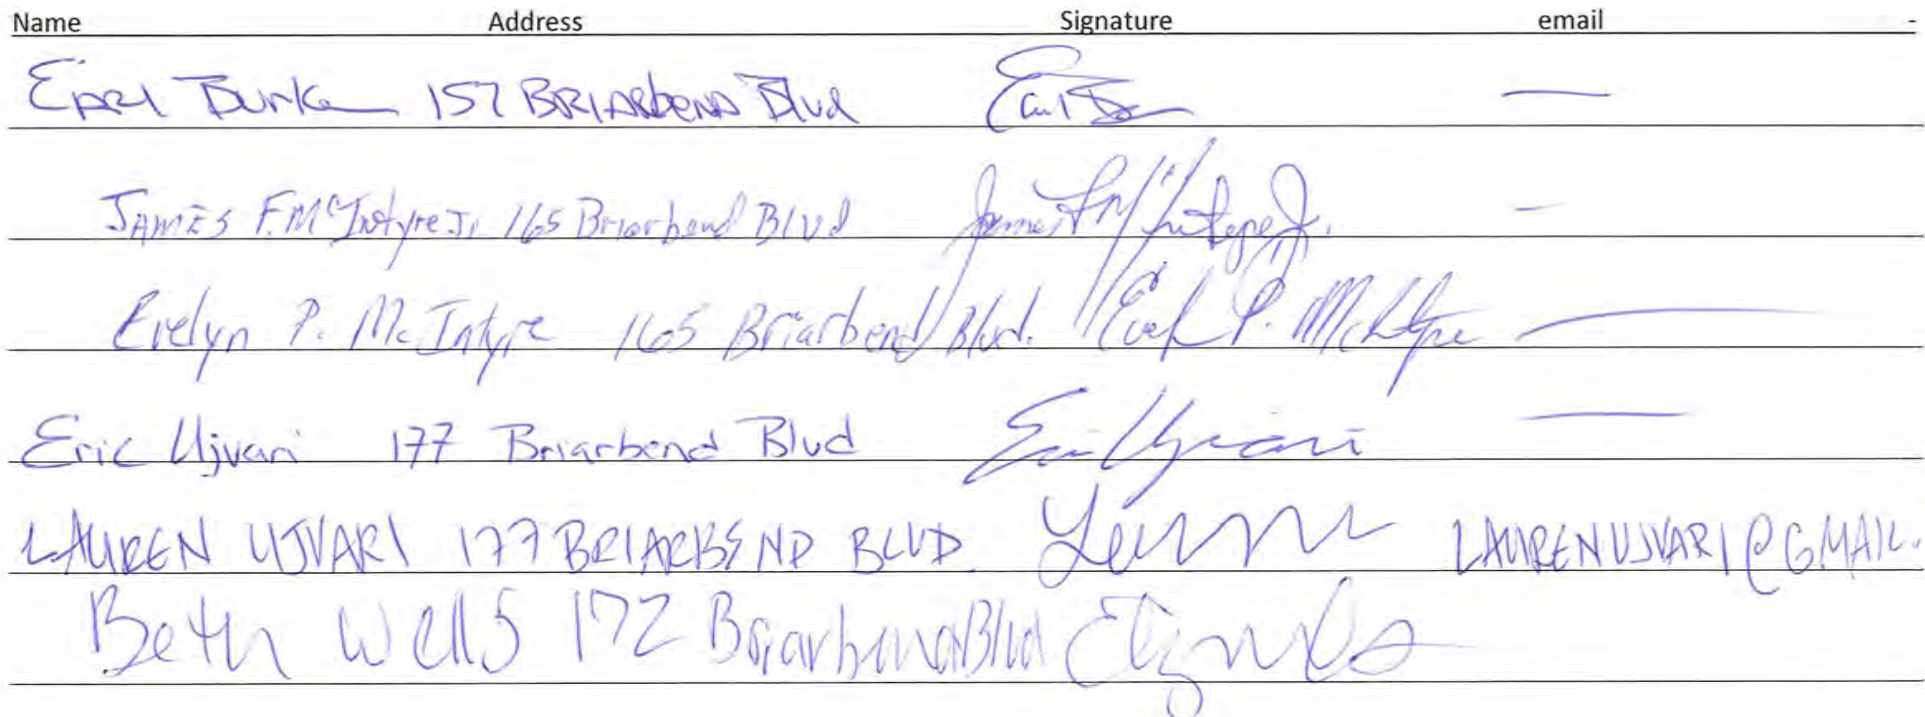 Name Address Signature email -
EARL Burke 157 BRIARbend Blvd Earl B —
JAMES F. McIntyre Jr 165 Briarbend BLVD James F McIntyre Jr. —
Evelyn P. McIntyre 165 Briarbend Blvd. Evelyn P. McIntyre —
Eric Ujvari 177 Briarbend Blvd Eric Ujvari —
LAUREN UJVARI 177 BRIARBEND BLVD LAURENUJVARI@GMAIL.
Beth Wells 172 Briarbend Blvd